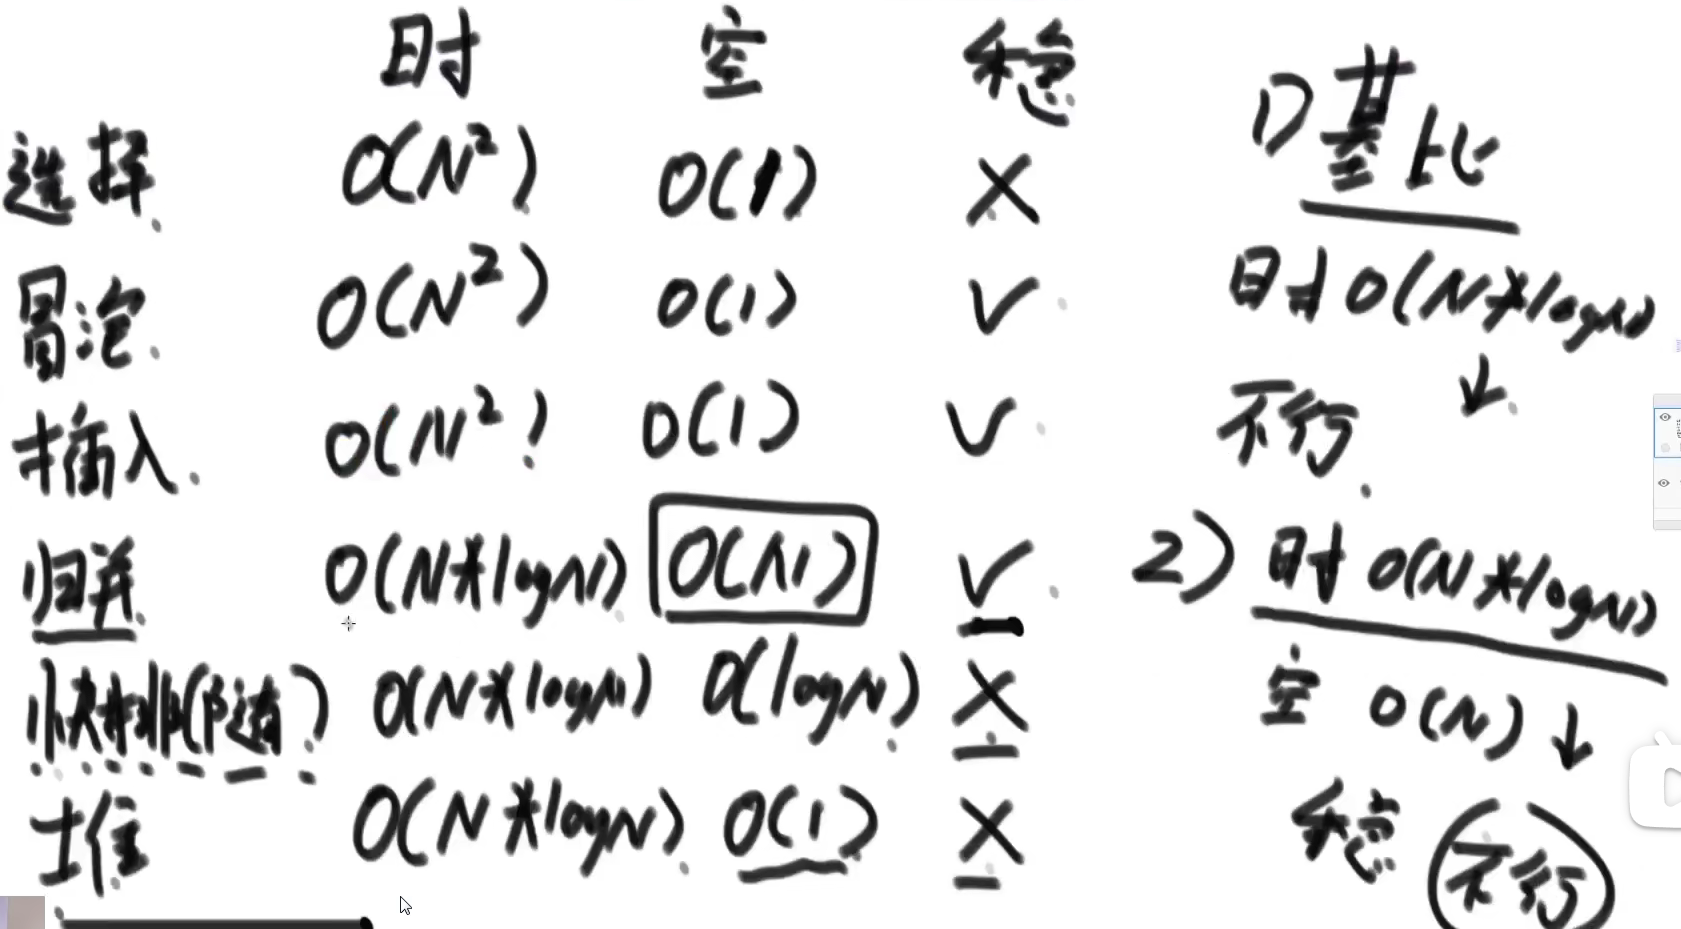 时 空 稳
选择 O(N²) O(1) X
冒泡 O(N²) O(1) ✓
插入 O(N²) O(1) ✓
归并 O(N*logN) O(N) ✓
快排(随) O(N*logN) O(logN) X
堆 O(N*logN) O(1) X
1) 基比
时 O(N*logN) ↓
不行.
2) 时 O(N*logN)
空 O(N) ↓
稳 不行